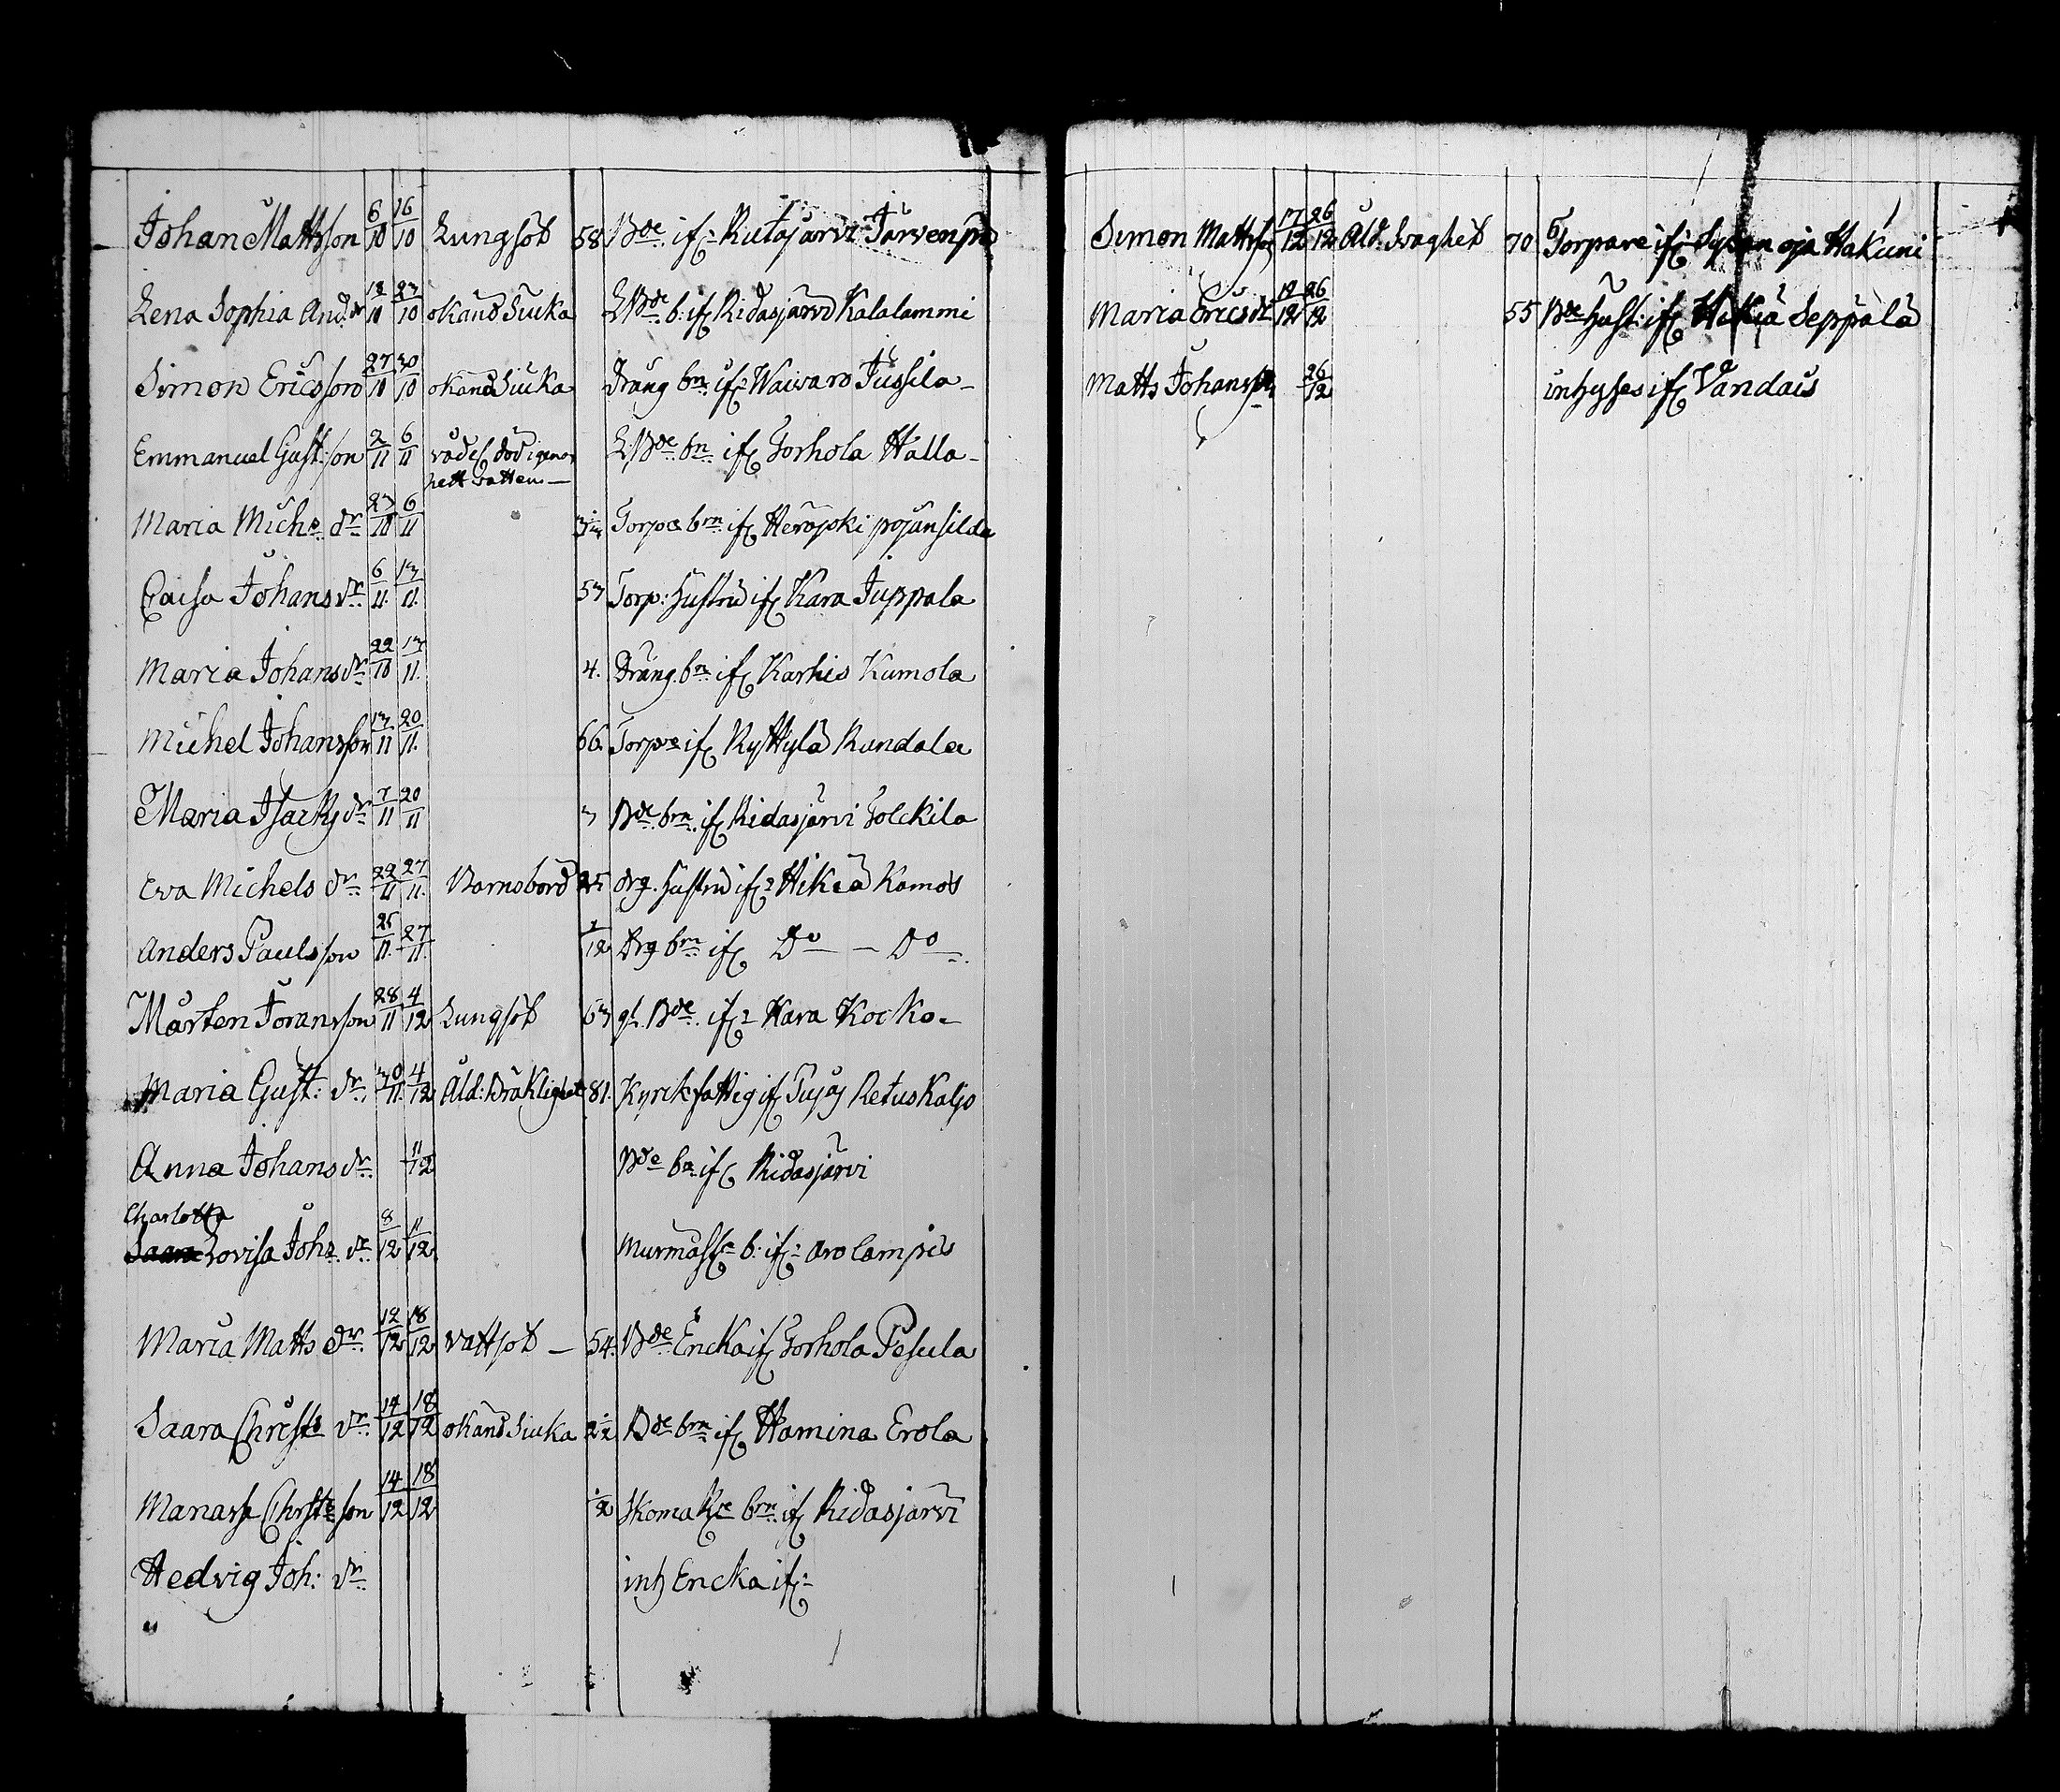 Johan Mattsson 6/10 16/10 Lungsot 58 Bde if: Ridasjärvi Järvenpä
Lena Sophia And: dr 18/10 23/10 okänd Siuka LBde b: if: Ridasjärvi Kalalammi
Simon Ericsson 27/10 30/10 okänd Siuka Dräng brn if: Waiwaro Jussila
Emmanuel Gust:son 2/11 6/11 L:Bde bn if: Torhola Halla
hett vatten
Maria Mich: dr 23/10 6/11 Torp brn if:
Caisa Johans dr 6/11. 13/11. 53 Torp: Hustru if: Kara Juppala
Maria Johans dr 22/10 13/11. 4. Dräng bn if: Karhis Kumola
Michel Johansson 13/11 20/11. 66. Torpe if: Ryttylä Rundala
Maria Isacks dr 7/11 20/11 3 Bde brn if: Ridasjärvi Tolckila
Eva Michels dr 22/11 27/11. Barnsbörd 25 drg. Hustru if: Hikiä Kamos
Anders Paulsson 25/11. 27/11. 1/12 Drg brn if: Do — Do
Mårten Joransson 28/11 4/12 Lungsot 63 gl. Bde if: Kara Kocko
Maria Gust: dr 30/11. 4/12 Åld: Bräklighet 81. Kyrckfattig if: Retuskaljo
Anna Johans dr 11/12 Bde bn if: Ridasjärvi
Charlotta
Saara Lovisa Joh: dr 8/12 11/12 Murmäst: b: if: Arolampis
Maria Matts dr 12/12 18/12 Vattsot 54. Bde Encka if: Torhola Pesula
Saara Christ: dr 14/12 18/12 okänd Siuka 2 1/2 Bde brn if: Hamina Erola
Manass Christ:son 14/12 18/12 1/2 Skomak:re brn if: Ridasjärvi
Hedvig Joh: dr inh Encka if:
"
Simon Mattss: 17/12 26/12 Åld: Svaghet 70 Torpare if: Hakuni
Maria Ericsdr 19/12 26/12 55 Bde Hust: if: Hikiä Seppälä
Matts Johanss: 26/12 inhyses if: Vandais